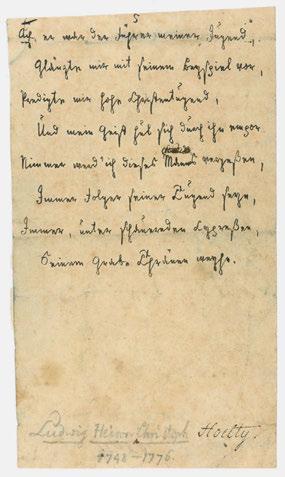 5
Ach er war der Führer meiner Jugend,
Glänzte mir mit seinem Beyspiel vor,
Predigte mir hohe Christentugend,
Und mein Geist hub sich durch ihn empor.
Nimmer werd' ich dieses Manns vergeßen,
Immer Folger seiner Tugend seyn,
Immer, unter schauernden Cypreßen,
Seinem Grabe Thränen weyhn.
Ludwig Heinr. Christoph Hoelty.
1748–1776.